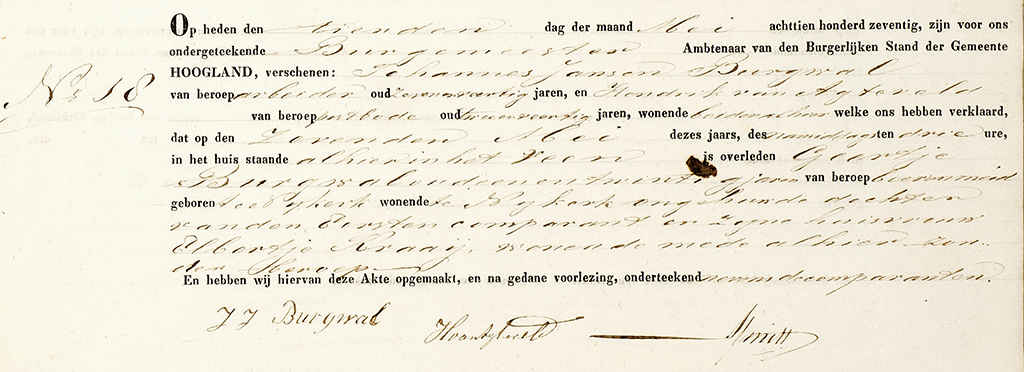 Op heden den tienden dag der maand Mei achttien honderd zeventig, zijn voor ons
ondergeteekende Burgemeester Ambtenaar van den Burgerlijken Stand der Gemeente
HOOGLAND, verschenen: Johannes Jansen Burgwal
No 18
van beroep arbeider oud zevenenveertig jaren, en Hendrik van Agteveld
van beroep veldbode oud tweeenveertig jaren, wonende beiden alhier welke ons hebben verklaard,
dat op den Zevenden Mei dezes jaars, des namiddags ten drie ure,
in het huis staande alhier in het veen is overleden Geertje
Burgwal oud eenentwintig jaren van beroep boerenmeid
geboren te Nijkerk wonende te Nijkerk ongehuwde dochter
van den Eersten comparant en zijne huisvrouw
Elbertje Kraaij, wonende mede alhier zon-
der beroep.
En hebben wij hiervan deze Akte opgemaakt, en na gedane voorlezing, onderteekend nevens de comparanten.
J J Burgwal
HvanAgteveld